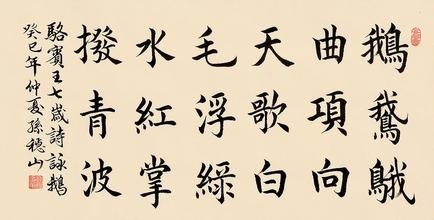 鵝鵞䳘
曲項向
天歌白
毛浮綠
水紅掌
撥青波
駱賓王七歲詩詠鵝
癸巳年仲夏孫穗山